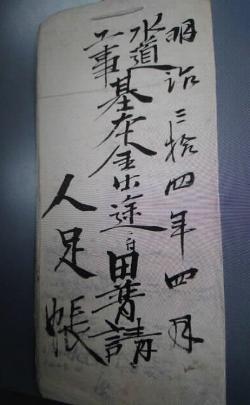 明治三拾四年四月
水道工事基本金出途田普請
人足帳